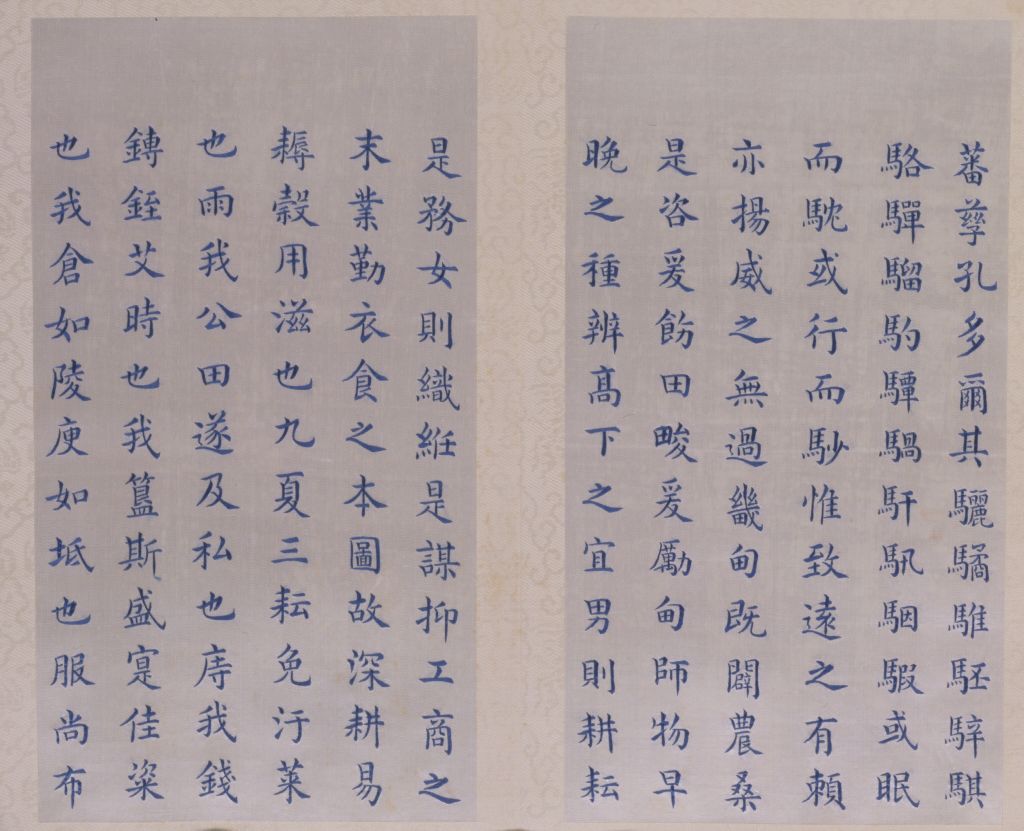 蕃孳孔多爾其驪驈騅駓騂騏
駱驒騮馰驔騧馯駰騢或眠
而或行而惟致遠之有賴
亦揚威之無過畿甸既闢農桑
是咨爰飭田畯爰勵甸師物早
晚之種辨髙下之宜男則耕耘
是務女則織絍是謀抑工商之
末業勤衣食之本圖故深耕易
耨穀用滋也九夏三耘免汙萊
也雨我公田遂及私也庤我錢
鎛銍艾時也我簋斯盛寔佳粢
也我倉如陵庾如坻也服尚布